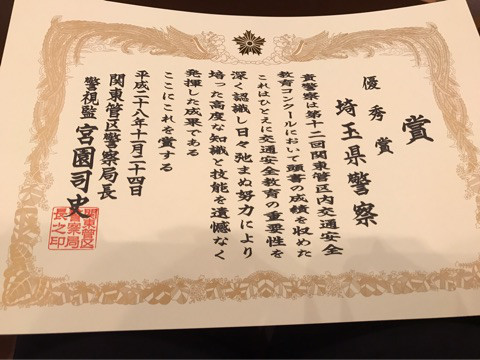 賞
優秀賞
埼玉県警察
貴警察は第十二回関東管区内交通安全
教育コンクールにおいて頭書の成績を収めた
これはひとえに交通安全教育の重要性を
深く認識し日々弛まぬ努力により
培った高度な知識と技能を遺憾なく
発揮した成果である
ここにこれを賞する
平成二十八年十月二十四日
関東管区警察局長
警視監 宮園司史
関東管区
警察局
長之印